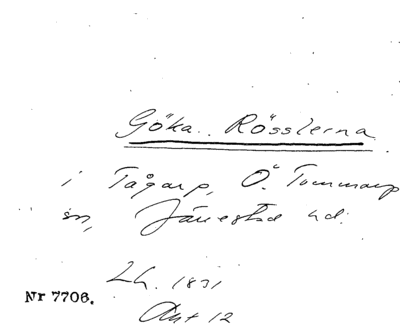 Göka Rösslerna
i Tågarp, Ö. Tommarp
sn, Järrestad hd.
Lh. 1831
Akt 12
Nr 7706.